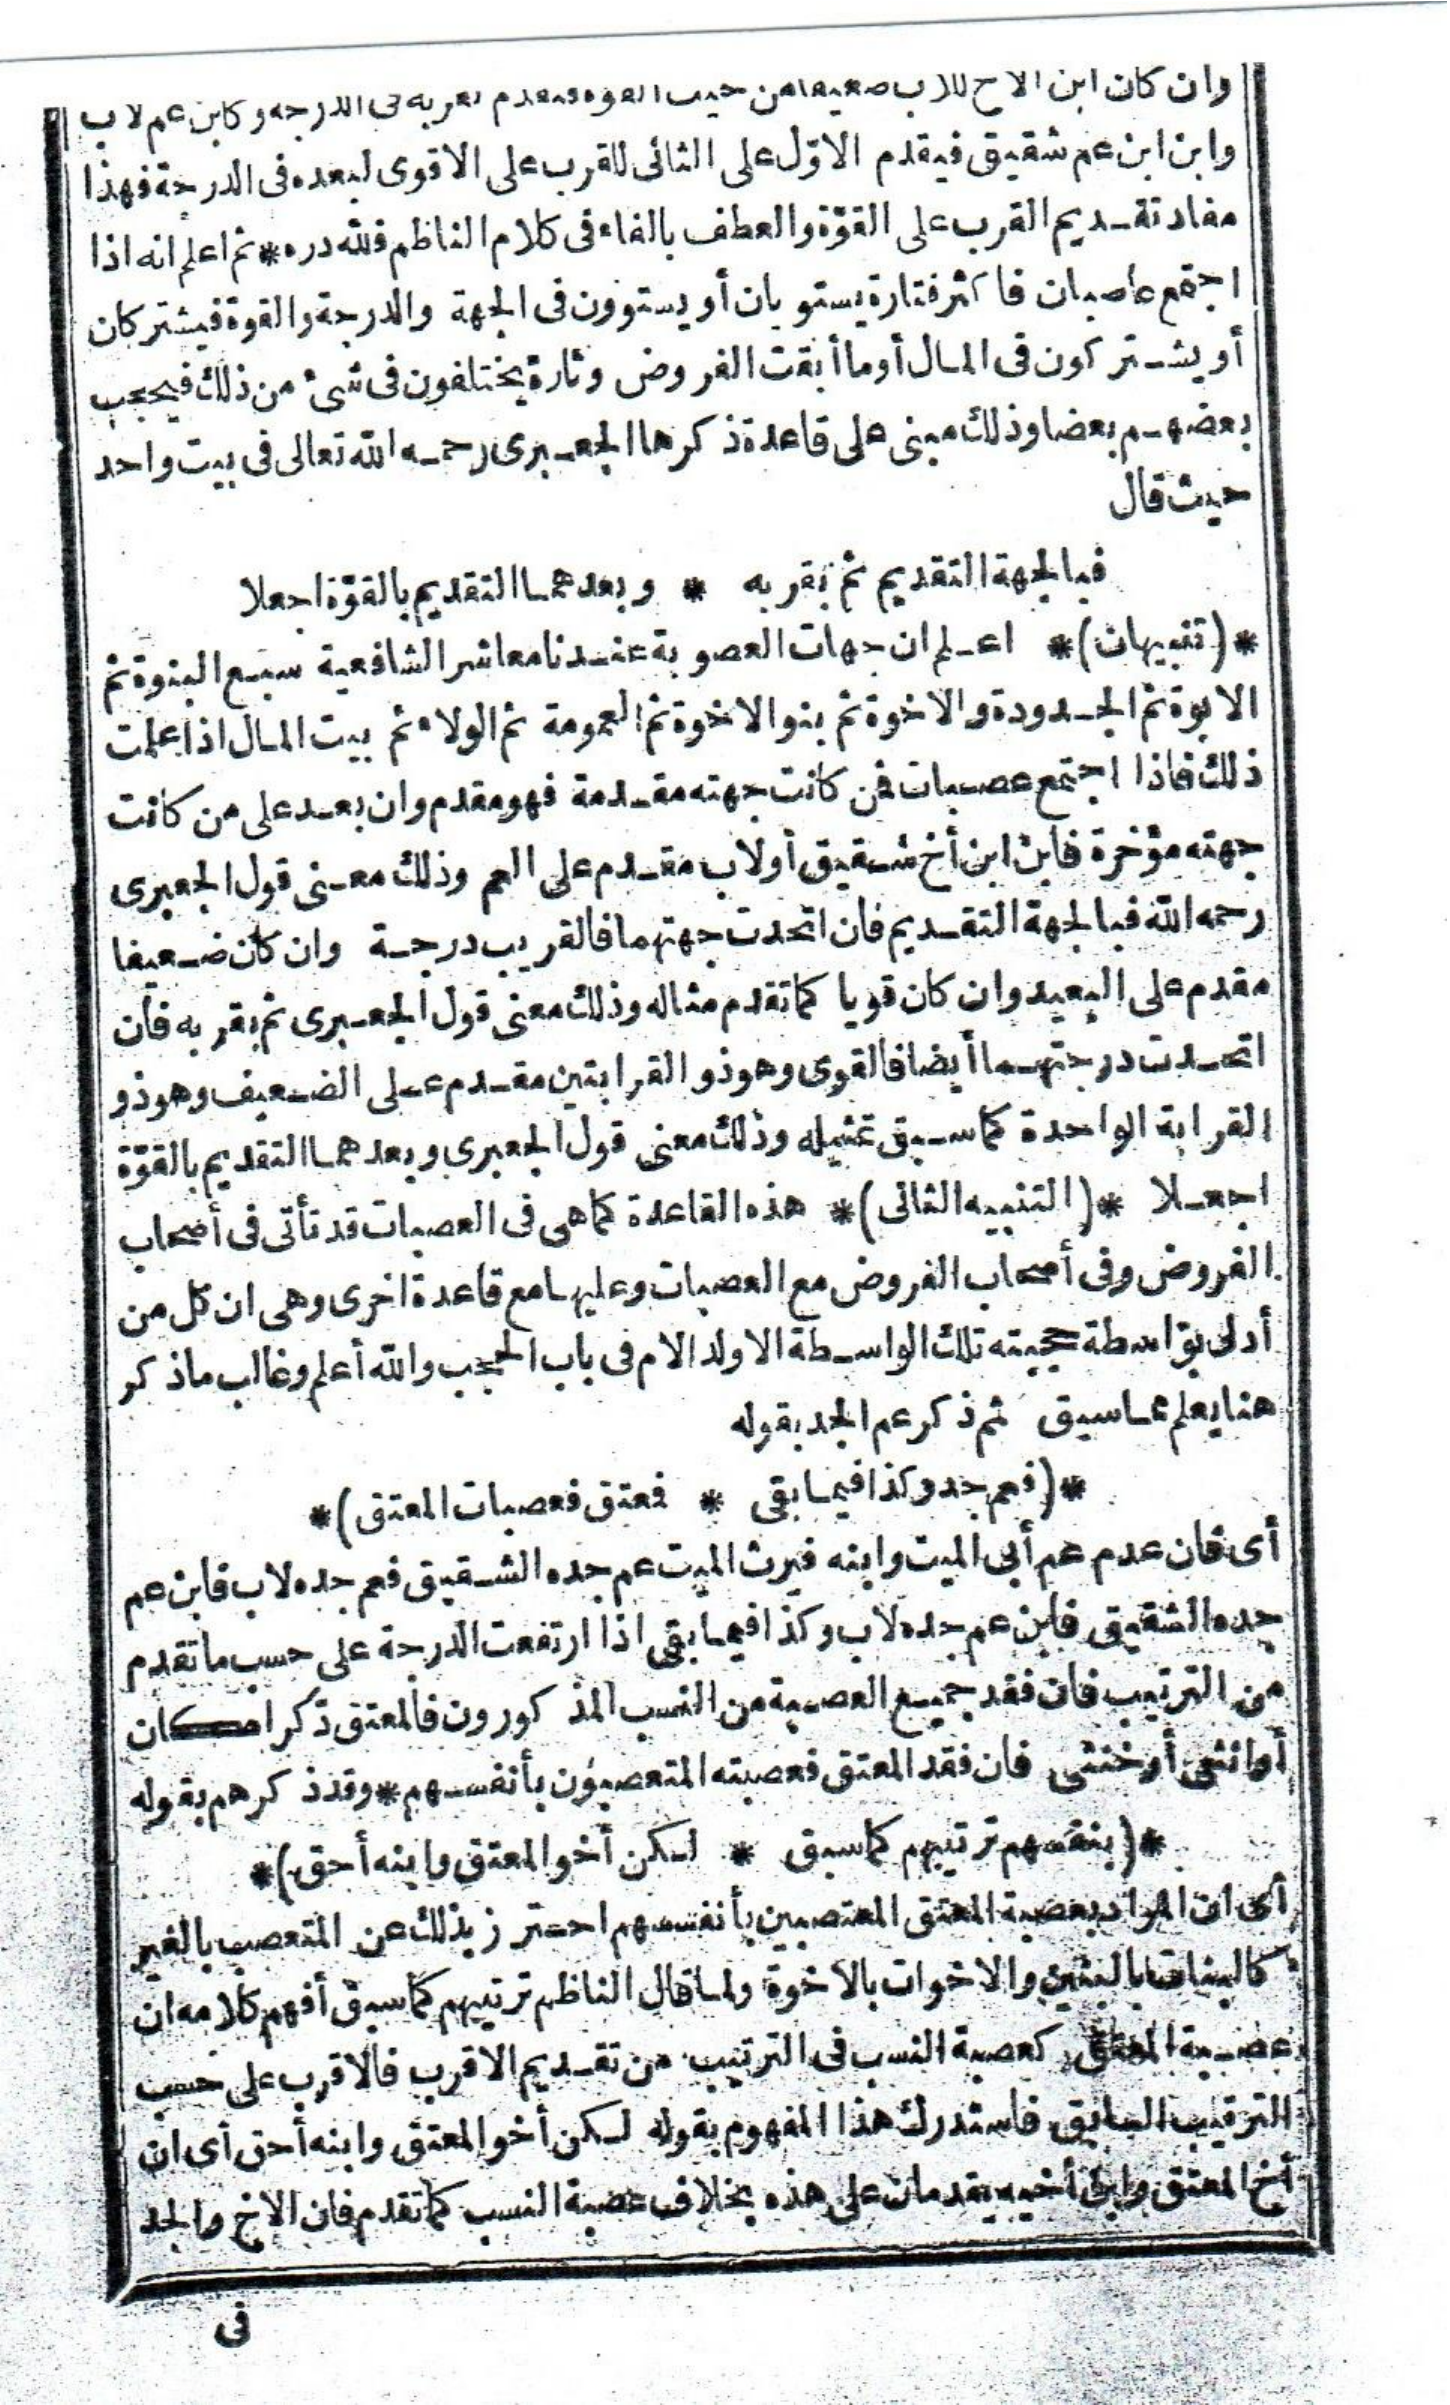 وان كان ابن الاخ للاب ضعيفا من حيث القوة فيقدم لقربه فى الدرجة وكابن عم لاب
وابن ابن عم شقيق فيقدم الاوّل على الثانى للقرب على الاقوى لبعده فى الدرجة فهذا
مفاد تقديم القرب على القوّة والعطف بالفاء فى كلام الناظم فللّه دره * ثم اعلم انه اذا
اجتمع عاصبان فاكثر فتارة يستويان أو يستوون فى الجهة والدرجة والقوة فيشتركان
أو يشتركون فى المال أو ما أبقت الفروض وتارة يختلفون فى شئ من ذلك فيحجب
بعضهم بعضا وذلك مبنى على قاعدة ذكرها الجعبرى رحمه اللّه تعالى فى بيت واحد
حيث قال
فبالجهة التقديم ثم بقربه * وبعدهما التقديم بالقوّة اجعلا
*(تنبيهان)* اعلم ان جهات العصوبة عندنا معاشر الشافعية سبع البنوة ثم
الابوّة ثم الجدودة والاخوة ثم بنو الاخوة ثم العمومة ثم الولاء ثم بيت المال اذا علمت
ذلك فاذا اجتمع عصبات فمن كانت جهته مقدمة فهو مقدم وان بعد على من كانت
جهته مؤخرة فابن ابن أخ شقيق أو لاب مقدم على العم وذلك معنى قول الجعبرى
رحمه اللّه فبالجهة التقديم فان اتحدت جهتهما فالقريب درجة وان كان ضعيفا
مقدم على البعيد وان كان قويا كما تقدم مثاله وذلك معنى قول الجعبرى ثم بقربه فان
اتحدت درجتهما أيضا فالقوى وهو ذو القرابتين مقدم على الضعيف وهو ذو
القرابة الواحدة كما سبق تمثيله وذلك معنى قول الجعبرى وبعدهما التقديم بالقوّة
اجعلا *(التنبيه الثانى)* هذه القاعدة كما هى فى العصبات قد تأتى فى أصحاب
الفروض وفى أصحاب الفروض مع العصبات وعليها مع قاعدة اخرى وهى ان كل من
أدلى بواسطة حجبته تلك الواسطة الا ولد الام فى باب الحجب واللّه أعلم وغالب ما ذكر
هنا يعلم مما سبق ثم ذكر عم الجد بقوله
*(فعم جد وكذا فيما بقى * فمعتق فعصبات المعتق)*
أى فان عدم عم أبى الميت وابنه فيرث الميت عم جده الشقيق فعم جده لاب فابن عم
جده الشقيق فابن عم جده لاب وكذا فيما بقى اذا ارتفعت الدرجة على حسب ما تقدم
من الترتيب فان فقد جميع العصبة من النسب المذكورون فالمعتق ذكرا كان
أو انثى أو خنثى فان فقد المعتق فعصبته المتعصبون بأنفسهم * وقد ذكرهم بقوله
*(بنفسهم ترتيبهم كما سبق * لكن أخو المعتق وابنه أحق)*
أى ان المراد بعصبة المعتق المعتصبين بأنفسهم احترز بذلك عن المتعصب بالغير
كالبنات بالبنين والاخوات بالاخوة ولما قال الناظم ترتيبهم كما سبق أفهم كلامه ان
عصبة المعتق كعصبة النسب فى الترتيب من تقديم الاقرب فالاقرب على حسب
الترتيب السابق فاستدرك هذا المفهوم بقوله لكن أخو المعتق وابنه أحق أى ان
أخ المعتق وابن أخيه يقدمان على هذه بخلاف عصبة النسب كما تقدم فان الاخ والجد
فى